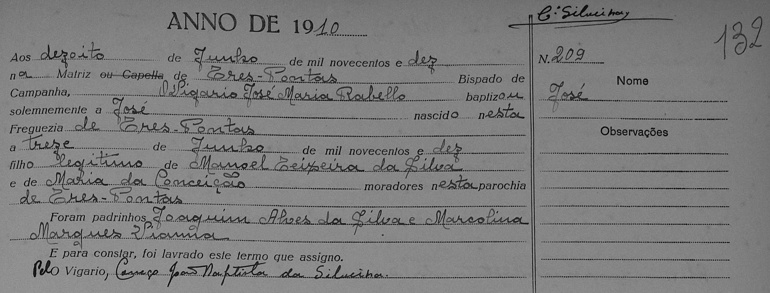 ANNO DE 1910
Cº Silveira
132
Aos dezoito de Junho de mil novecentos e dez
na Matriz ou Capella de Tres-Pontas Bispado de
Campanha, O Vigario José Maria Rabello baptizou
solemnemente a José nascido nesta
Freguezia de Tres-Pontas
a treze de Junho de mil novecentos e dez
filho legitimo de Manoel Teixeira da Silva
e de Maria da Conceição moradores nesta parochia
de Tres-Pontas
Foram padrinhos Joaquim Alves da Silva e Marcolina
Marques Vianna
E para constar, foi lavrado este termo que assigno.
Pelo Vigario, Conego João Baptista da Silveira.
N. 209
Nome
José
Observações